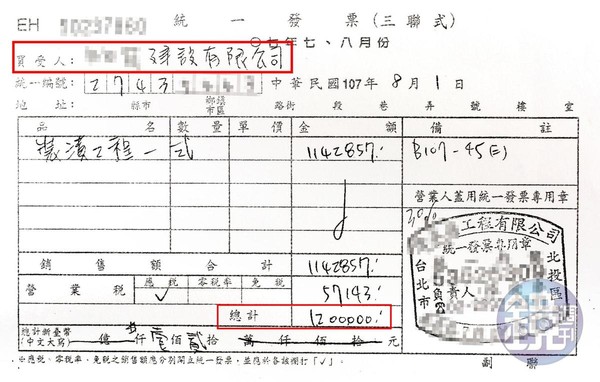 EH 統一發票(三聯式)
○七年七、八月份
買受人: 建設有限公司
統一編號: 2743 中華民國107年8月1日
地址: 縣市 鄉鎮市區 路街 段 巷 弄 號 樓 室
品名 數量 單價 金額 備註
裝潢工程一式 1142857.- B107-45(E)
營業人蓋用統一發票專用章
30%
工程有限公司
統一發票專用章
台北市 北投區
負責人
銷售額合計 1142857.-
營業稅 應稅 零稅率 免稅 57143.-
✓
總計 1200000.-
總計新臺幣(中文大寫) 億 仟 佰貳拾 萬 仟 佰 拾 元
※應稅、零稅率、免稅之銷售額應分別開立統一發票,並應於各該欄打「✓」。
副聯